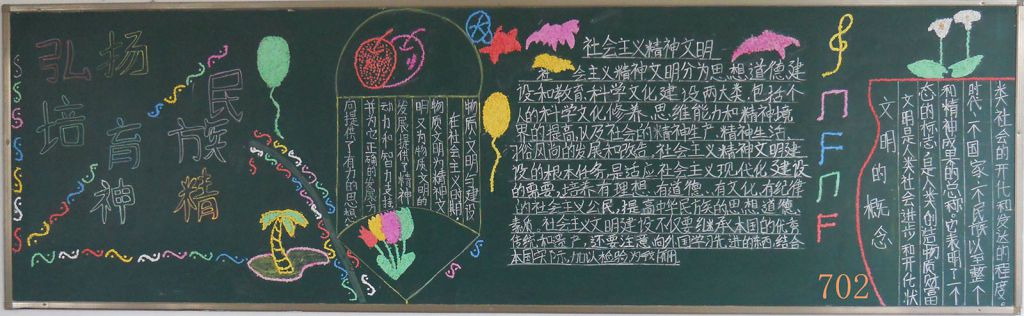 弘扬
培育
民族
精神
物质文明与建设
在社会主义时期
物质文明为精神文
明又为物质文明的
发展提供了精神
动力和智力支持
并为它正确的发展方
向提供了有力的思想
社会主义精神文明
社会主义精神文明分为思想道德建
设和教育科学文化建设两大类,包括个
人的科学文化修养、思维能力和精神境
界的提高,以及社会的精神生产,精神生活,
俗风尚的发展和改造。社会主义精神文明建
设的根本任务,是适应社会主义现代化建设
的需要,培养有理想、有道德、有文化、有纪律
的社会主义公民,提高中华民族的思想道德、
素质。社会主义文明建设不仅要继承本国的优秀
传统和遗产,还要注意向外国学习先进的东西,结合
本国实际,加以检验为我所用。
文明的概念
文明是人类社会进步和开化状
态的标志,是人类创造物质财富
和精神成果的总称。它表明了一个
时代、一个国家、一个民族以至整个
类社会的开化和发达的程度。
702